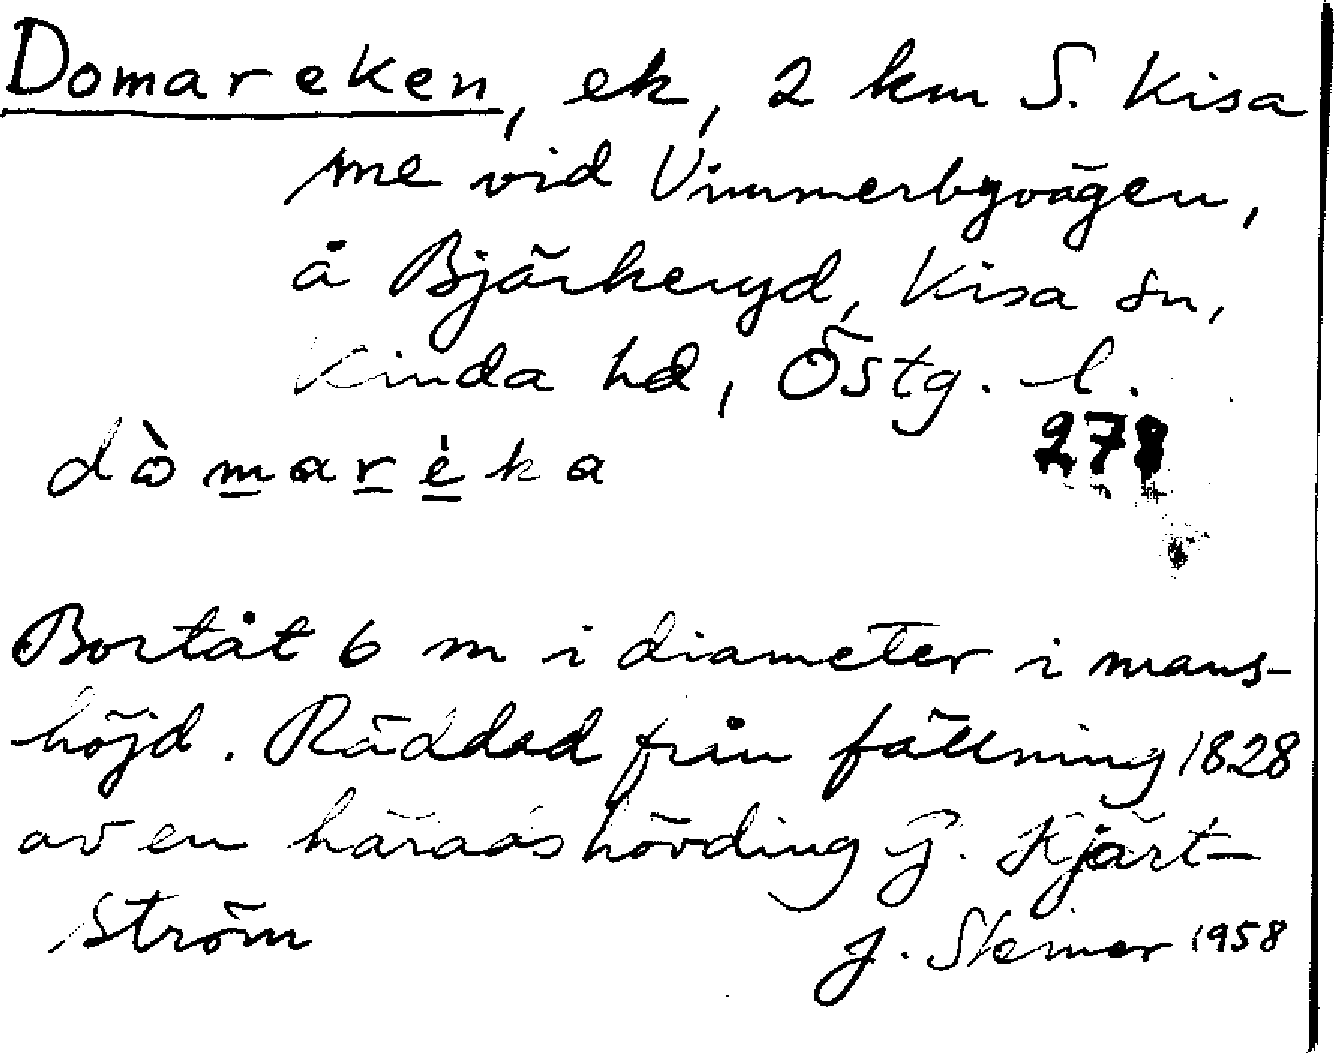 Domareken, ek, 2 km S. Kisa
sme vid Vimmerbyvägen,
å Bjärkeryd, Kisa sn,
Kinda hd, Östg. l.
278
dòmarèka
Bortåt 6 m i diameter i mans-
höjd. Räddad från fällning 1828
av en häradshövding G. Kjärt-
ström
J. Steiner 1958